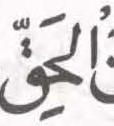 الْحَقِّ